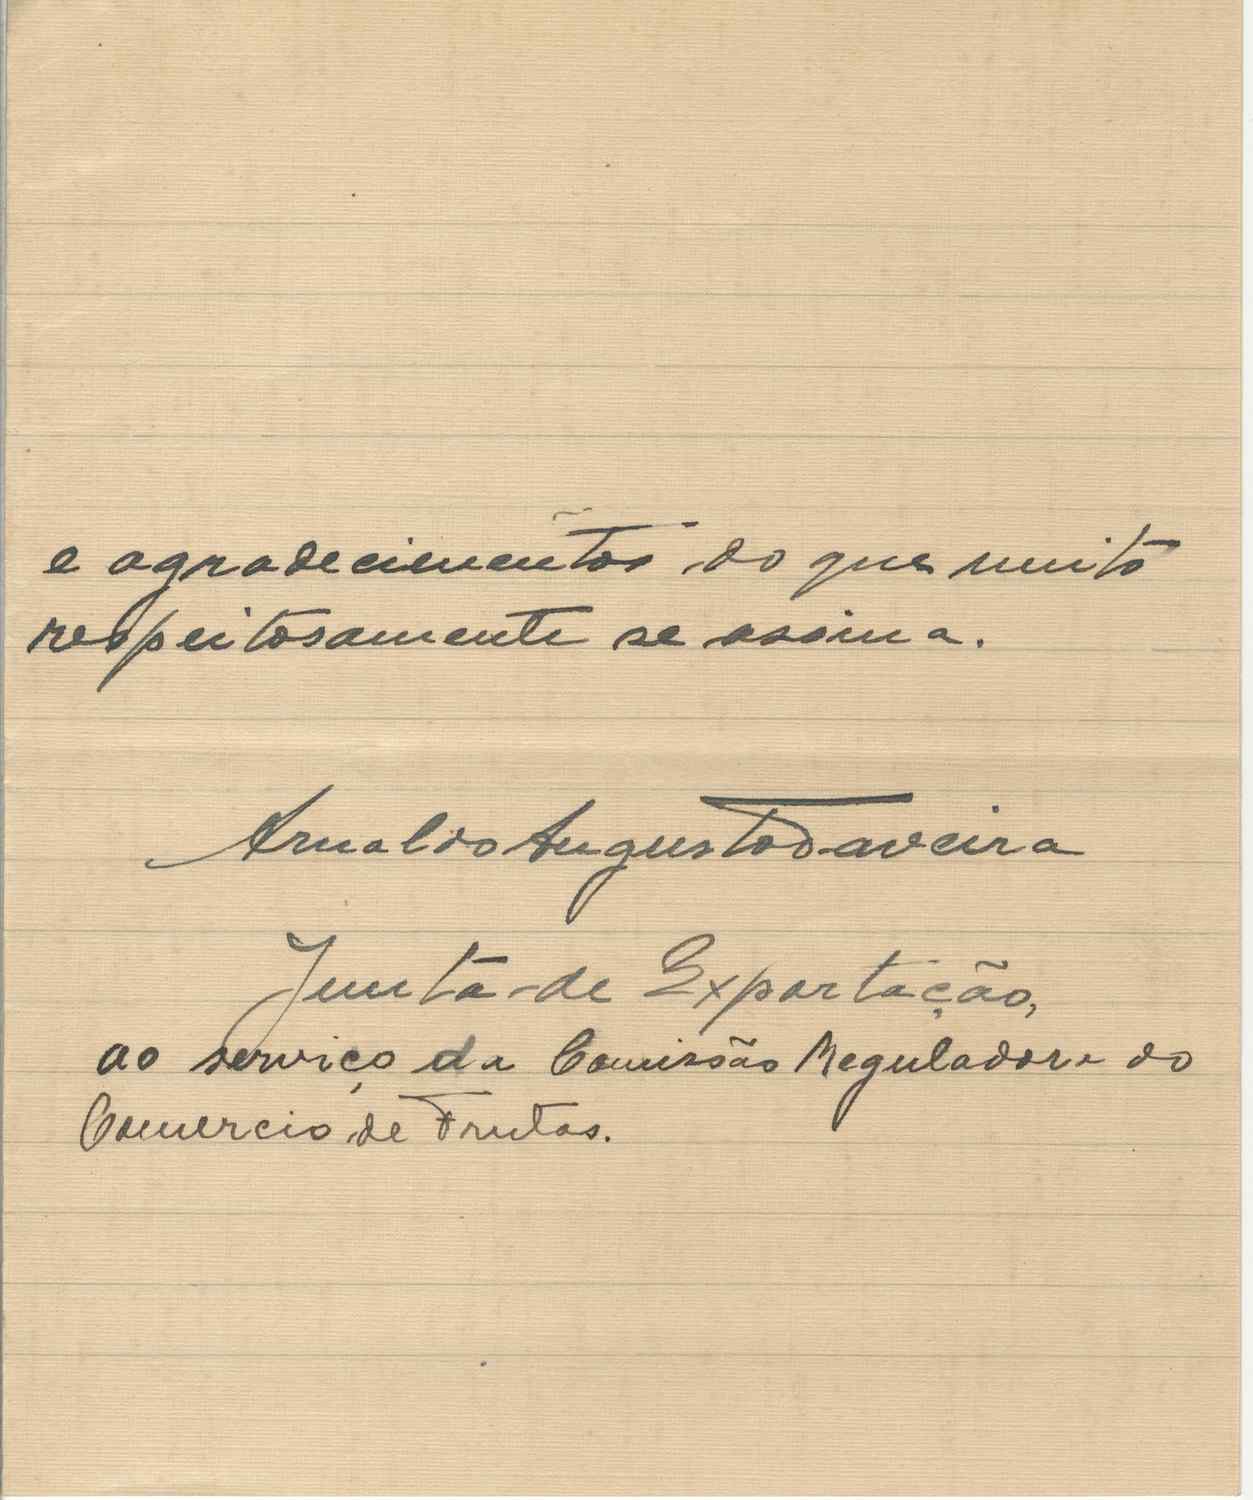 e agradecimentos do que muito
respeitosamente se assina.
Arnaldo Augusto Taveira
Junta de Exportação,
ao serviço da Comissão Reguladora do
Comercio de Frutas.